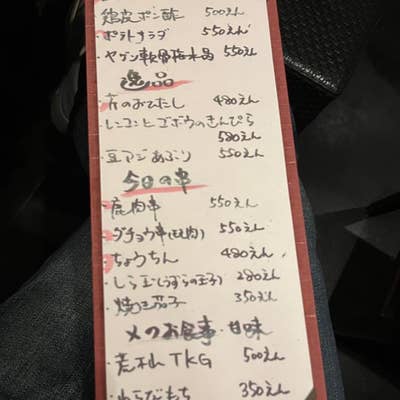 ・鶏皮ポン酢 500えん
・ポテトサラダ 550えん
・ヤゲン軟骨 550えん
逸品
のおひたし 480えん
・レンコンとゴボウのきんぴら
580えん
・豆アジあぶり 550えん
今日の串
・鹿肉串 550えん
・ダチョウ串(もも肉) 550えん
・ちょうちん 480えん
・しら玉(うずらの玉子) 280えん
・焼き茄子 350えん
〆のお食事・甘味
TKG 500えん
・わらびもち 350えん